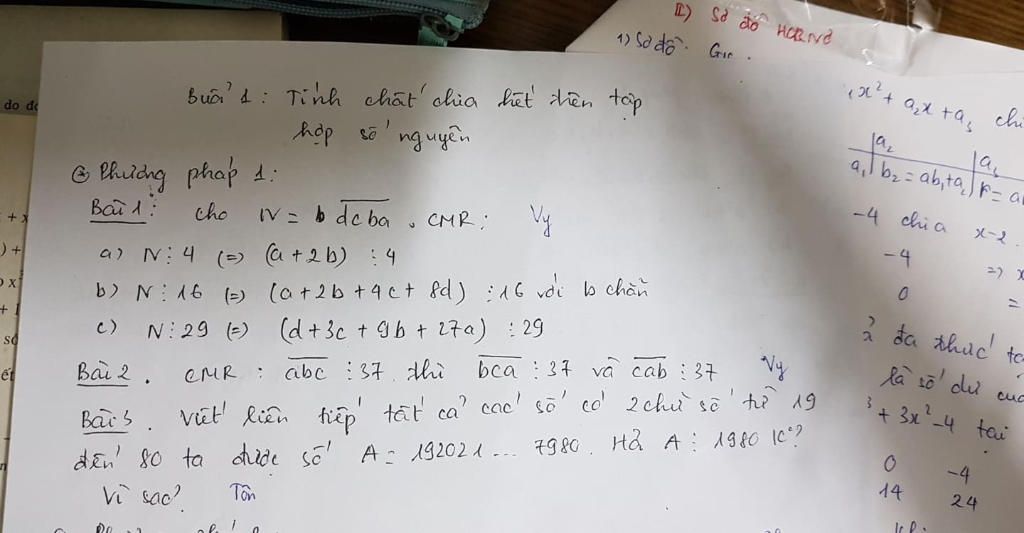 II) Sơ đồ HORNE
1) Sơ đồ.
Buổi 1: Tính chất chia hết trên tập
hợp số nguyên
Phương pháp 1:
Bài 1: Cho N = dcba. CMR: Vy
a) N ⋮ 4 (=) (a + 2b) ⋮ 4
b) N ⋮ 16 (=) (a + 2b + 4c + 8d) ⋮ 16 với b chẵn
c) N ⋮ 29 (=) (d + 3c + 9b + 27a) ⋮ 29
Bài 2. CMR: abc ⋮ 37 thì bca ⋮ 37 và cab ⋮ 37 Vy
Bài 3. Viết liên tiếp tất cả các số có 2 chữ số từ 19
đến 80 ta được số A = 192021... 7980. Hỏi A ⋮ 1980 K°?
Vì sao? Tôn
x² + a₂x + a₃ chi
a₂ a₃
a₁ b₂ = ab₁ + a₂
-4 chia x-2
-4 => x
0 =
đa thức
là số dư
+ 3x² - 4 tại
0 -4
14 24